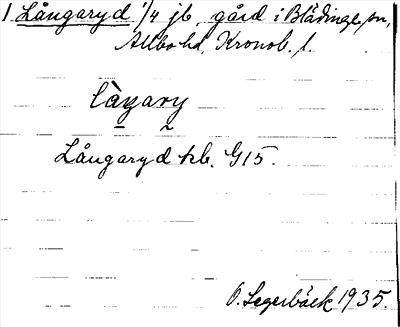 1 Långaryd 1/4 jb, gård i Blädinge sn,
Allbo hd, Kronob. l.
Långaryd kb. G15.
O. Segerbäck 1935.